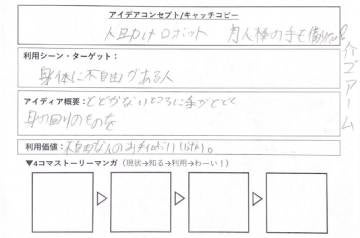 アイデアコンセプト/キャッチコピー
人助けロボット
介ゴアーム
利用シーン・ターゲット:
身体に不自由がある人
アイディア概要:とどかないところに手がとどく
身の回りのものを
利用価値:不自由な人のお手伝い
▼4コマストーリーマンガ (現状→知る→利用→わーい!)